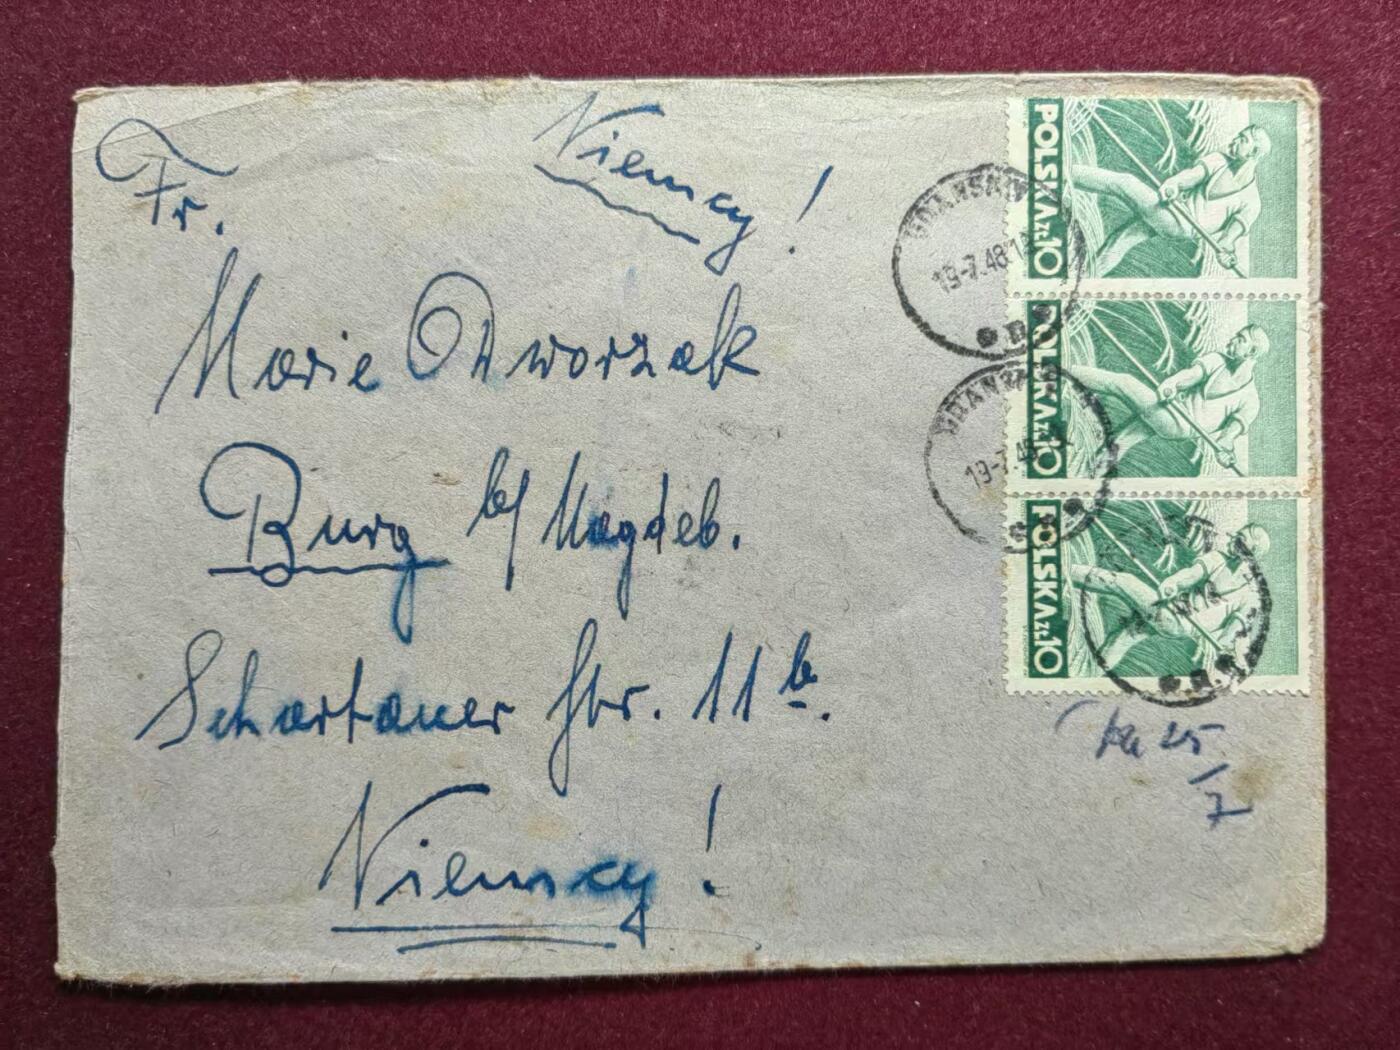 Niemcy!
Fr.
Marie Dworzak
Burg b/ Magdeb.
Schartauer Str. 11 b.
Niemcy!
POLSKA ZŁ 10
POLSKA ZŁ 10
POLSKA ZŁ 10
GDAŃSK
19-7.48
GDAŃSK
19-7.48
25/7